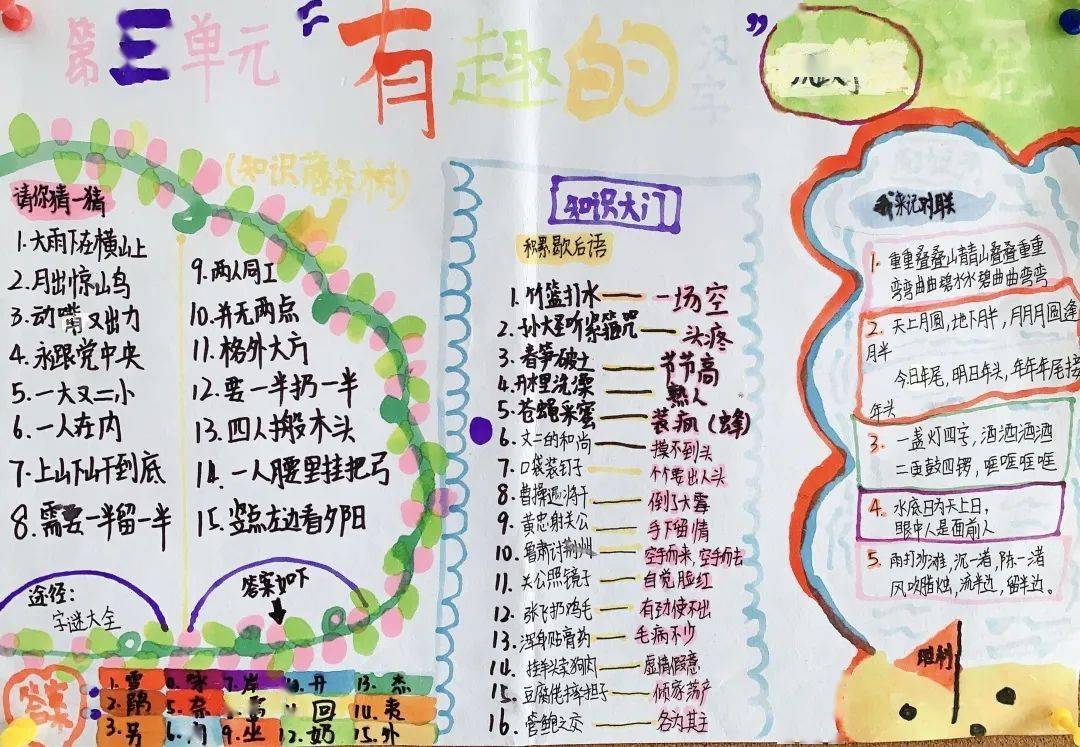 第三单元“有趣的汉字”
(知识藤条树)
请你猜一猜
1.大雨下在横山上
2.月出惊山鸟
3.动嘴又出力
4.永跟党中央
5.一大又二小
6.一人在内
7.上山下山干到底
8.需要一半留一半
9.两人同工
10.并无两点
11.格外大方
12.要一半扔一半
13.四人搬木头
14.一人腰里挂把弓
15.竖点左边看夕阳
途径:
字谜大全
答案如下
答案
1.雪
2.鹃
3.另
4.咏
5.奈
7.岸
9.巫
10.开
11.回
12.奶
13.杰
14.夷
15.外
知识大门
积累歇后语
1.竹篮打水——一场空
2.孙大圣听紧箍咒——头疼
3.春笋破土——节节高
4.开水里洗澡——熟人
5.苍蝇采蜜——装疯(蜂)
6.丈二的和尚——摸不到头
7.口袋装钉子——个个要出人头
8.曹操遇蒋干——倒了大霉
9.黄忠射关公——手下留情
10.鲁肃讨荆州——空手而来,空手而去
11.关公照镜子——自觉脸红
12.张飞扔鸡毛——有劲使不出
13.浑身贴膏药——毛病不少
14.挂羊头卖狗肉——虚情假意
15.豆腐佬摔担子——倾家荡产
16.管鲍之交——各为其主
我来记对联
1.重重叠叠山青山叠叠重重
弯弯曲曲碧水水碧曲曲弯弯
2.天上月圆,地下月半,月月月圆逢
月半
今日年尾,明日年头,年年年尾接
年头
3.一盏灯四字,酒酒酒酒
二面鼓四锣,哐哐哐哐
4.水底日为天上日,
眼中人是面前人
5.雨打沙滩,沉一渚,陈一渚
风吹腊烛,流半边,留半边。
胜利